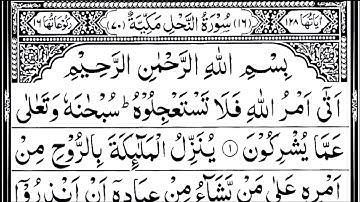 اٰیَاتُهَا ۱۲۸ (۱۶) سُوْرَةُ النَّحْلِ مَكِّیَّةٌ (۷۰) رُكُوْعَاتُهَا ۱۶
بِسْمِ اللّٰهِ الرَّحْمٰنِ الرَّحِیْمِ
اَتٰۤی اَمْرُ اللّٰهِ فَلَا تَسْتَعْجِلُوْهُ ؕ سُبْحٰنَهٗ وَ تَعٰلٰی
عَمَّا یُشْرِكُوْنَ ۝۱ یُنَزِّلُ الْمَلٰٓىِٕكَةَ بِالرُّوْحِ مِنْ
اَمْرِهٖ عَلٰی مَنْ یَّشَآءُ مِنْ عِبَادِهٖۤ اَنْ اَنْذِرُوْۤا